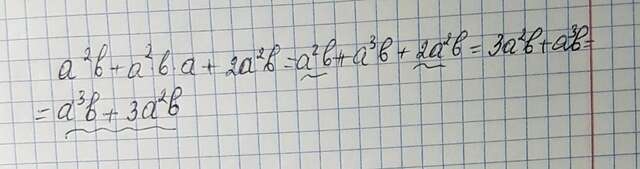 a²b + a²b·a + 2a²b = a²b + a³b + 2a²b = 3a²b + a³b =
= a³b + 3a²b